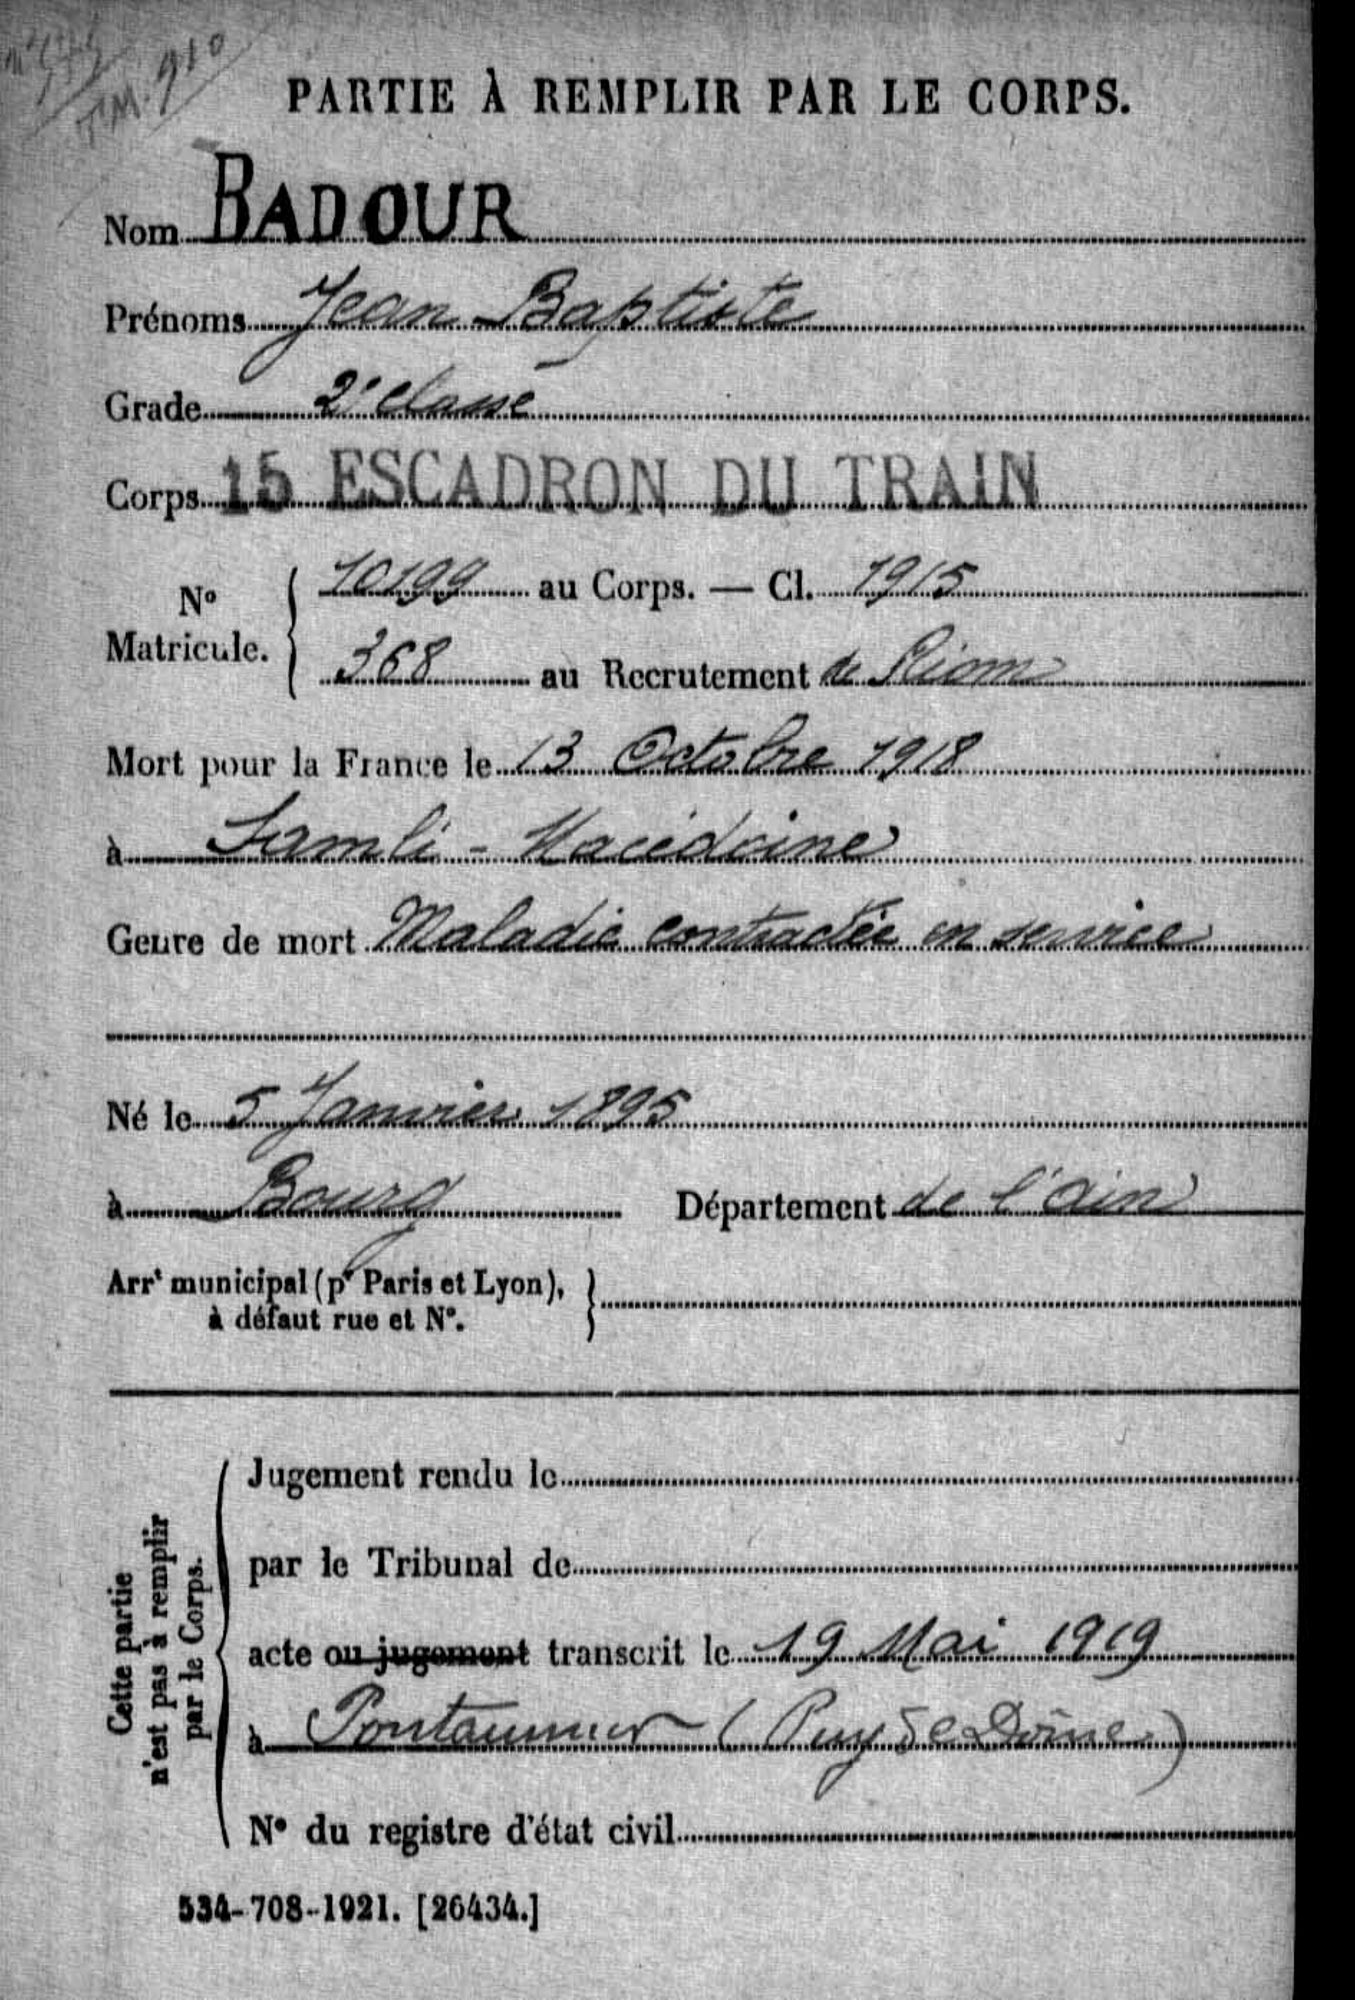 T.M. 910
PARTIE À REMPLIR PAR LE CORPS.
Nom BADOUR
Prénoms Jean Baptiste
Grade 2e classe
Corps 15 ESCADRON DU TRAIN
No Matricule. { 10199 au Corps. — Cl. 1915
368 au Recrutement de Riom
Mort pour la France le 13 Octobre 1918
à Samli - Macédoine
Genre de mort Maladie contractée en service
Né le 5 Janvier 1895
à Bourg Département de l'Ain
Arrt municipal (pr Paris et Lyon), }
à défaut rue et No.
Cette partie
n'est pas à remplir
par le Corps.
Jugement rendu le
par le Tribunal de
acte ou jugement transcrit le 19 Mai 1919
à Pontaumur (Puy de Dôme)
No du registre d'état civil
534-708-1921. [26434.]